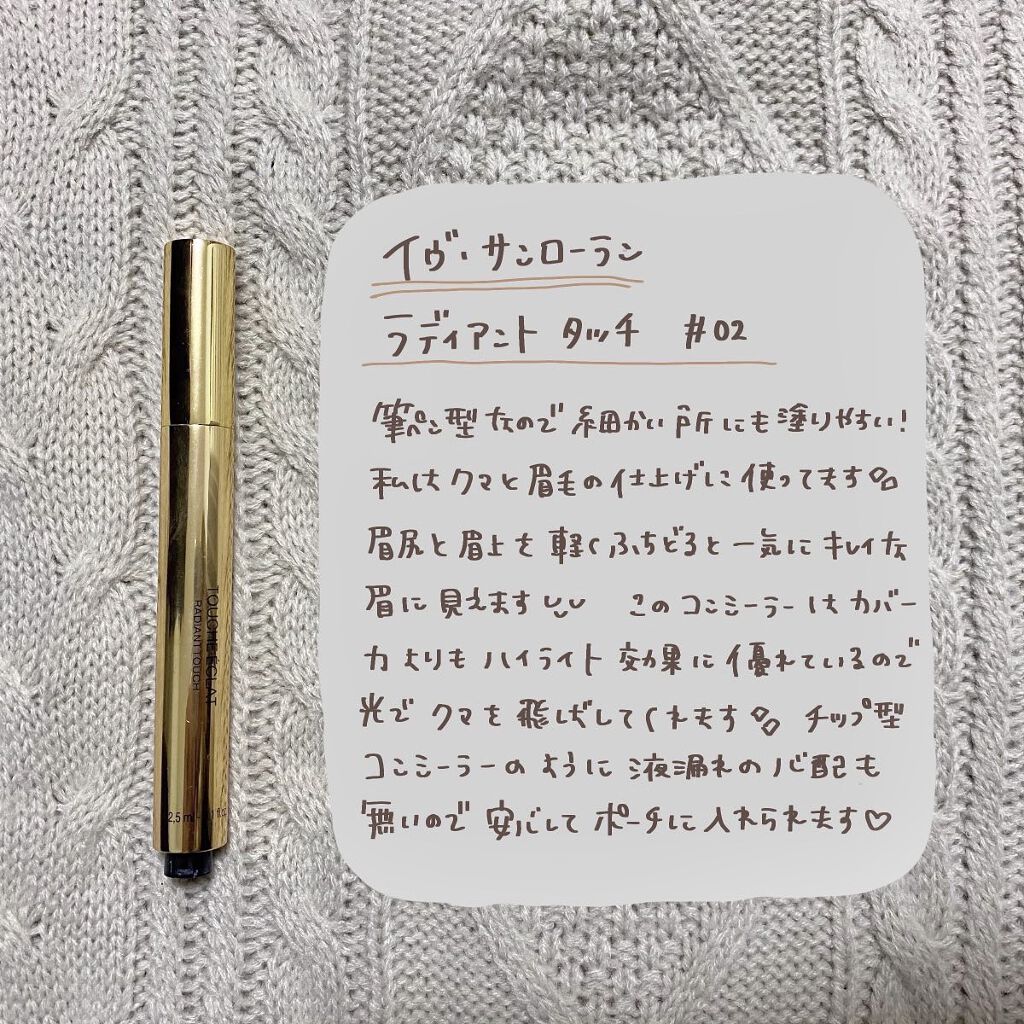 イヴ・サンローラン
ラディアント タッチ #02
筆ペン型なので細かい所にも塗りやすい!
私はクマと眉毛の仕上げに使ってます
眉尻と眉上を軽くふちどると一気にキレイな
眉に見えます このコンシーラーはカバー
力よりもハイライト効果に優れているので
光でクマを飛ばしてくれます チップ型
コンシーラーのように液漏れの心配も
無いので安心してポーチに入れられます♡
TOUCHE ECLAT
RADIANT TOUCH
2,5 ml